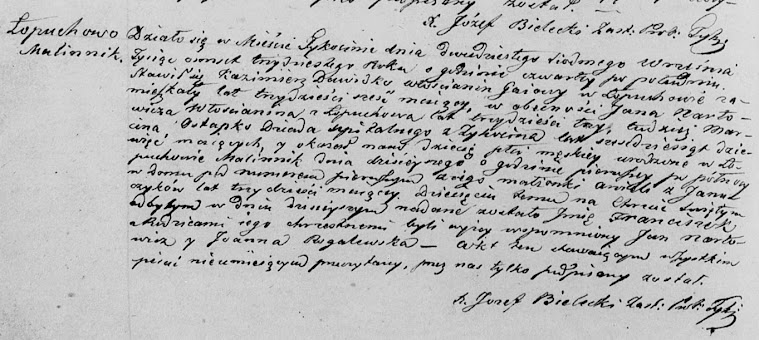 x. Józef Bielecki Zast: Prob: Tyk:
Łopuchowo
Malinnik.
Działo się w Mieście Tykocinie dnia dwudziestego siodmego Września
Tysiąc osmset trzydziestego Roku o godzinie czwarty po południu.
Stawił się Kazimierz włościanin Gaiowy w Łopuchowie za-
mięszkały lat trzydzieści sześć maiący, w obecności Jana Narto-
wicza Włościanina z Łopuchowa lat trzydzieści trzy, tudzież Mar-
cina Ostapko Dziada Szpitalnego z Tykocina lat sześdziesiąt dzie-
więć maiących, y okazał nam dziecię płci męskiey urodzone w Ło-
puchowie Malinnik dnia dzisieyszego o godzinie pierwszy po północy
w domu pod numerem pierwszym z iego małżonki Anieli z Janu-
czyków lat trzydzieści maiący. Dziecięciu temu na Chrzcie świętym
odbytym w dniu dzisieyszym nadane zostało Imię Franciszek
a Rodzicami iego chrzestnemi byli wyżey wspomniony Jan Narto-
wicz y Joanna Rogalewska — Akt ten stawaiącym wszystkim
pisać nieumieiącym przeczytany, przez nas tylko podpisany został.
x. Jozef Bielecki Zast: Prob: Tyk: